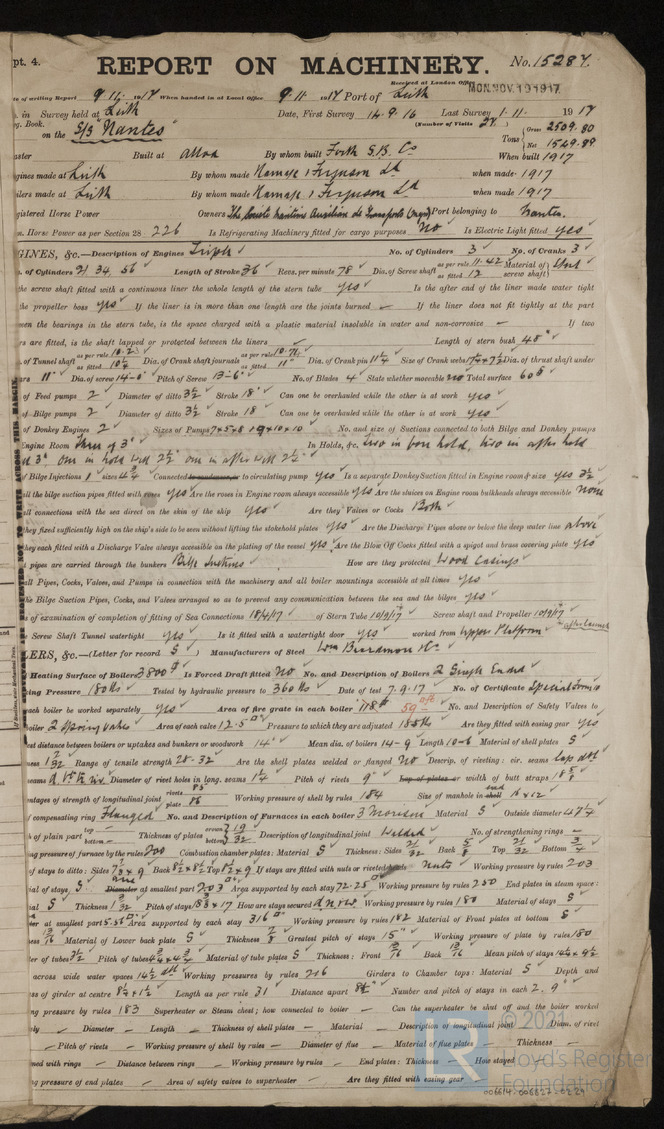 pt. 4.
REPORT ON MACHINERY. No. 15287.
Received at London Office MON. NOV. 19 1917
of writing Report 9. 11. 1917 When handed in at Local Office 9. 11. 1917 Port of Leith
in Survey held at Leith Date, First Survey 14.9.16 Last Survey 1.11. 1917
g. Book. (Number of Visits 27)
on the S/S "Nantes" Tons Gross 2509.80 Net 1549.89
aster Built at Alloa By whom built Forth S.B. Co When built 1917
gines made at Leith By whom made Ramage & Ferguson Ld when made 1917
oilers made at Leith By whom made Ramage & Ferguson Ld when made 1917
gistered Horse Power Owners Port belonging to Nantes.
. Horse Power as per Section 28 226 Is Refrigerating Machinery fitted for cargo purposes No Is Electric Light fitted yes
GINES, &c.—Description of Engines Triple No. of Cylinders 3 No. of Cranks 3
of Cylinders 21 34 56 Length of Stroke 36 Revs. per minute 78 Dia. of Screw shaft as per rule 11.42 as fitted 12 Material of screw shaft
the screw shaft fitted with a continuous liner the whole length of the stern tube yes Is the after end of the liner made water tight
the propeller boss yes If the liner is in more than one length are the joints burned — If the liner does not fit tightly at the part
een the bearings in the stern tube, is the space charged with a plastic material insoluble in water and non-corrosive — If two
rs are fitted, is the shaft lapped or protected between the liners Length of stern bush 48"
of Tunnel shaft as per rule as fitted Dia. of Crank shaft journals as per rule as fitted 11" Dia. of Crank pin 11¼ Size of Crank webs Dia. of thrust shaft under
ars 11" Dia. of screw 14-0 Pitch of Screw 13-6" No. of Blades 4 State whether moveable no Total surface 60
of Feed pumps 2 Diameter of ditto 3½ Stroke 18" Can one be overhauled while the other is at work yes
of Bilge pumps 2 Diameter of ditto 3½ Stroke 18 Can one be overhauled while the other is at work yes
of Donkey Engines 2 Sizes of Pumps No. and size of Suctions connected to both Bilge and Donkey pumps
Engine Room Three of 3" In Holds, &c. two in fore hold, two in after hold
of 3". One in hold well 2½" one in after well 2½"
of Bilge Injections 1 sizes Connected to condenser, or to circulating pump yes Is a separate Donkey Suction fitted in Engine room & size yes 3½
all the bilge suction pipes fitted with roses yes Are the roses in Engine room always accessible yes Are the sluices on Engine room bulkheads always accessible none
all connections with the sea direct on the skin of the ship yes Are they Valves or Cocks Both
they fixed sufficiently high on the ship's side to be seen without lifting the stokehold plates yes Are the Discharge Pipes above or below the deep water line above
they each fitted with a Discharge Valve always accessible on the plating of the vessel yes Are the Blow Off Cocks fitted with a spigot and brass covering plate yes
t pipes are carried through the bunkers Bilge Suctions How are they protected Wood Casings
all Pipes, Cocks, Valves, and Pumps in connection with the machinery and all boiler mountings accessible at all times yes
the Bilge Suction Pipes, Cocks, and Valves arranged so as to prevent any communication between the sea and the bilges yes
s of examination of completion of fitting of Sea Connections 18/4/17 of Stern Tube 10/9/17 Screw shaft and Propeller 10/9/17
after launch
e Screw Shaft Tunnel watertight yes Is it fitted with a watertight door yes worked from Upper Platform
LERS, &c.—(Letter for record S) Manufacturers of Steel Wm Beardmore & Co.
Heating Surface of Boilers 3800 Is Forced Draft fitted No No. and Description of Boilers 2 Single Ended
ing Pressure 180 lbs Tested by hydraulic pressure to 360 lbs Date of test 7.9.17 No. of Certificate
each boiler be worked separately yes Area of fire grate in each boiler No. and Description of Safety Valves to
boiler 2 Spring valves Area of each valve 12.5 Pressure to which they are adjusted 185 lbs Are they fitted with easing gear yes
est distance between boilers or uptakes and bunkers or woodwork 14" Mean dia. of boilers 14-9 Length 10-6 Material of shell plates S
ness Range of tensile strength 28-32 Are the shell plates welded or flanged No Descrip. of riveting: cir. seams lap dbl
seams Diameter of rivet holes in long. seams 1¼ Pitch of rivets 9" Lap of plates or width of butt straps
entages of strength of longitudinal joint rivets 85 plate 86 Working pressure of shell by rules 184 Size of manhole in shell end 16×12
of compensating ring Flanged No. and Description of Furnaces in each boiler 3 Morison Material S Outside diameter
of plain part top — bottom — Thickness of plates crown bottom 19/32 Description of longitudinal joint Welded No. of strengthening rings —
ng pressure of furnace by the rules 200 Combustion chamber plates: Material S Thickness: Sides 21/32 Back 5/8 Top 21/32 Bottom 3/4
of stays to ditto: Sides Back Top If stays are fitted with nuts or riveted heads nuts Working pressure by rules 203
ial of stays S Diameter at smallest part 203 Area supported by each stay 72.25 Working pressure by rules 250 End plates in steam space:
ial S Thickness Pitch of stays How are stays secured d nuts Working pressure by rules 180 Material of stays S
ter at smallest part Area supported by each stay 316 Working pressure by rules 182 Material of Front plates at bottom S
ness 13/16 Material of Lower back plate S Thickness Greatest pitch of stays 15" Working pressure of plate by rules 180
ter of tubes 3½ Pitch of tubes Material of tube plates S Thickness: Front 13/16 Back 13/16 Mean pitch of stays
across wide water spaces 14½ Working pressures by rules 206 Girders to Chamber tops: Material S Depth and
ss of girder at centre Length as per rule 31 Distance apart Number and pitch of stays in each 2. 9"
ng pressure by rules 183 Superheater or Steam chest; how connected to boiler — Can the superheater be shut off and the boiler worked
ly — Diameter — Length — Thickness of shell plates — Material — Description of longitudinal joint Diam. of rivet
— Pitch of rivets — Working pressure of shell by rules — Diameter of flue — Material of flue plates — Thickness —
ned with rings — Distance between rings — Working pressure by rules — End plates: Thickness How stayed
ng pressure of end plates — Area of safety valves to superheater — Are they fitted with easing gear —
© 2021
Lloyd's Register
Foundation
006614-006627-0229